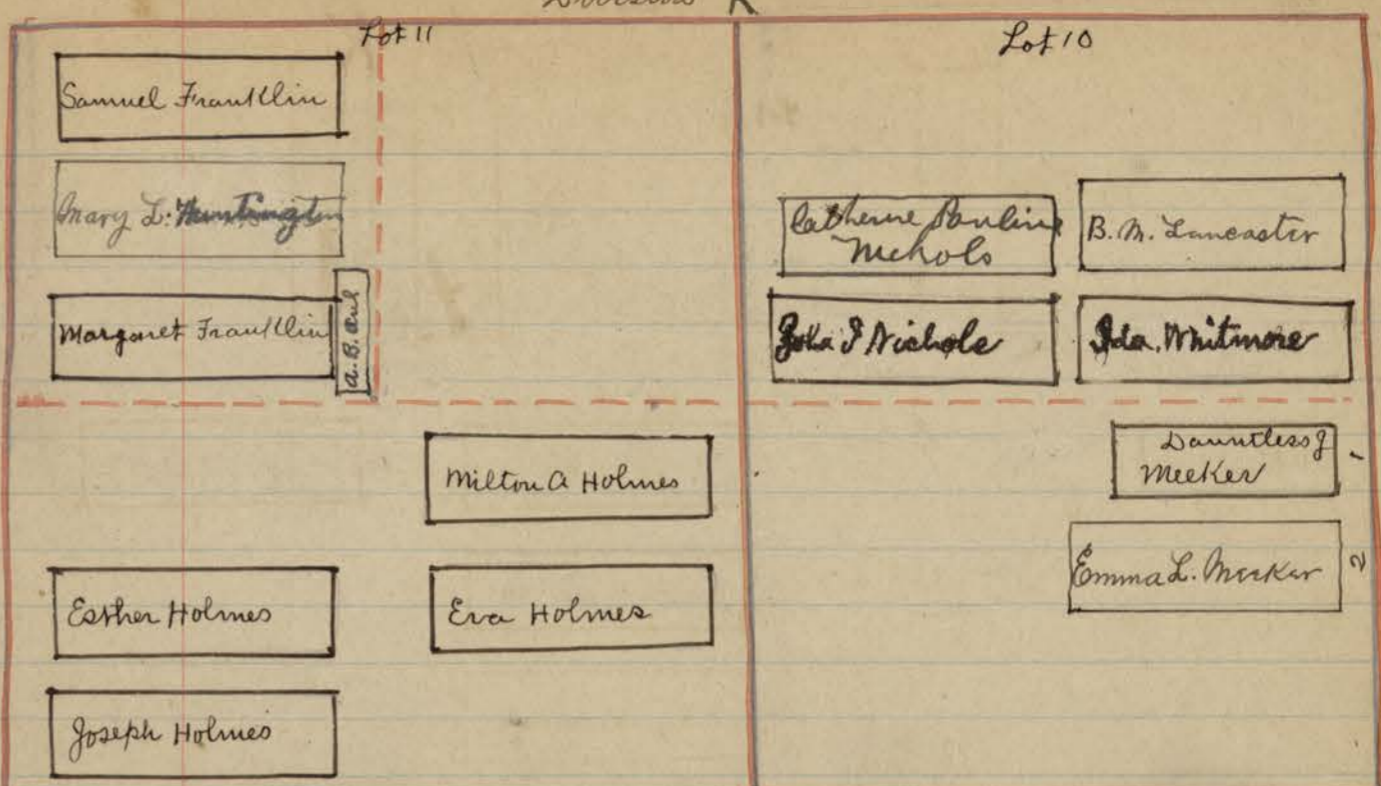 Division K
Lot 11
Samuel Franklin
Mary L. Huntington
Margaret Franklin
A. B. Aul
Milton A Holmes
Esther Holmes
Eva Holmes
Joseph Holmes
Lot 10
Catherine Pauline
Nichols
B. M. Lancaster
Nichols
Ida. Whitmore
Dauntless J
Meeker
1
Emma L. Meeker
2